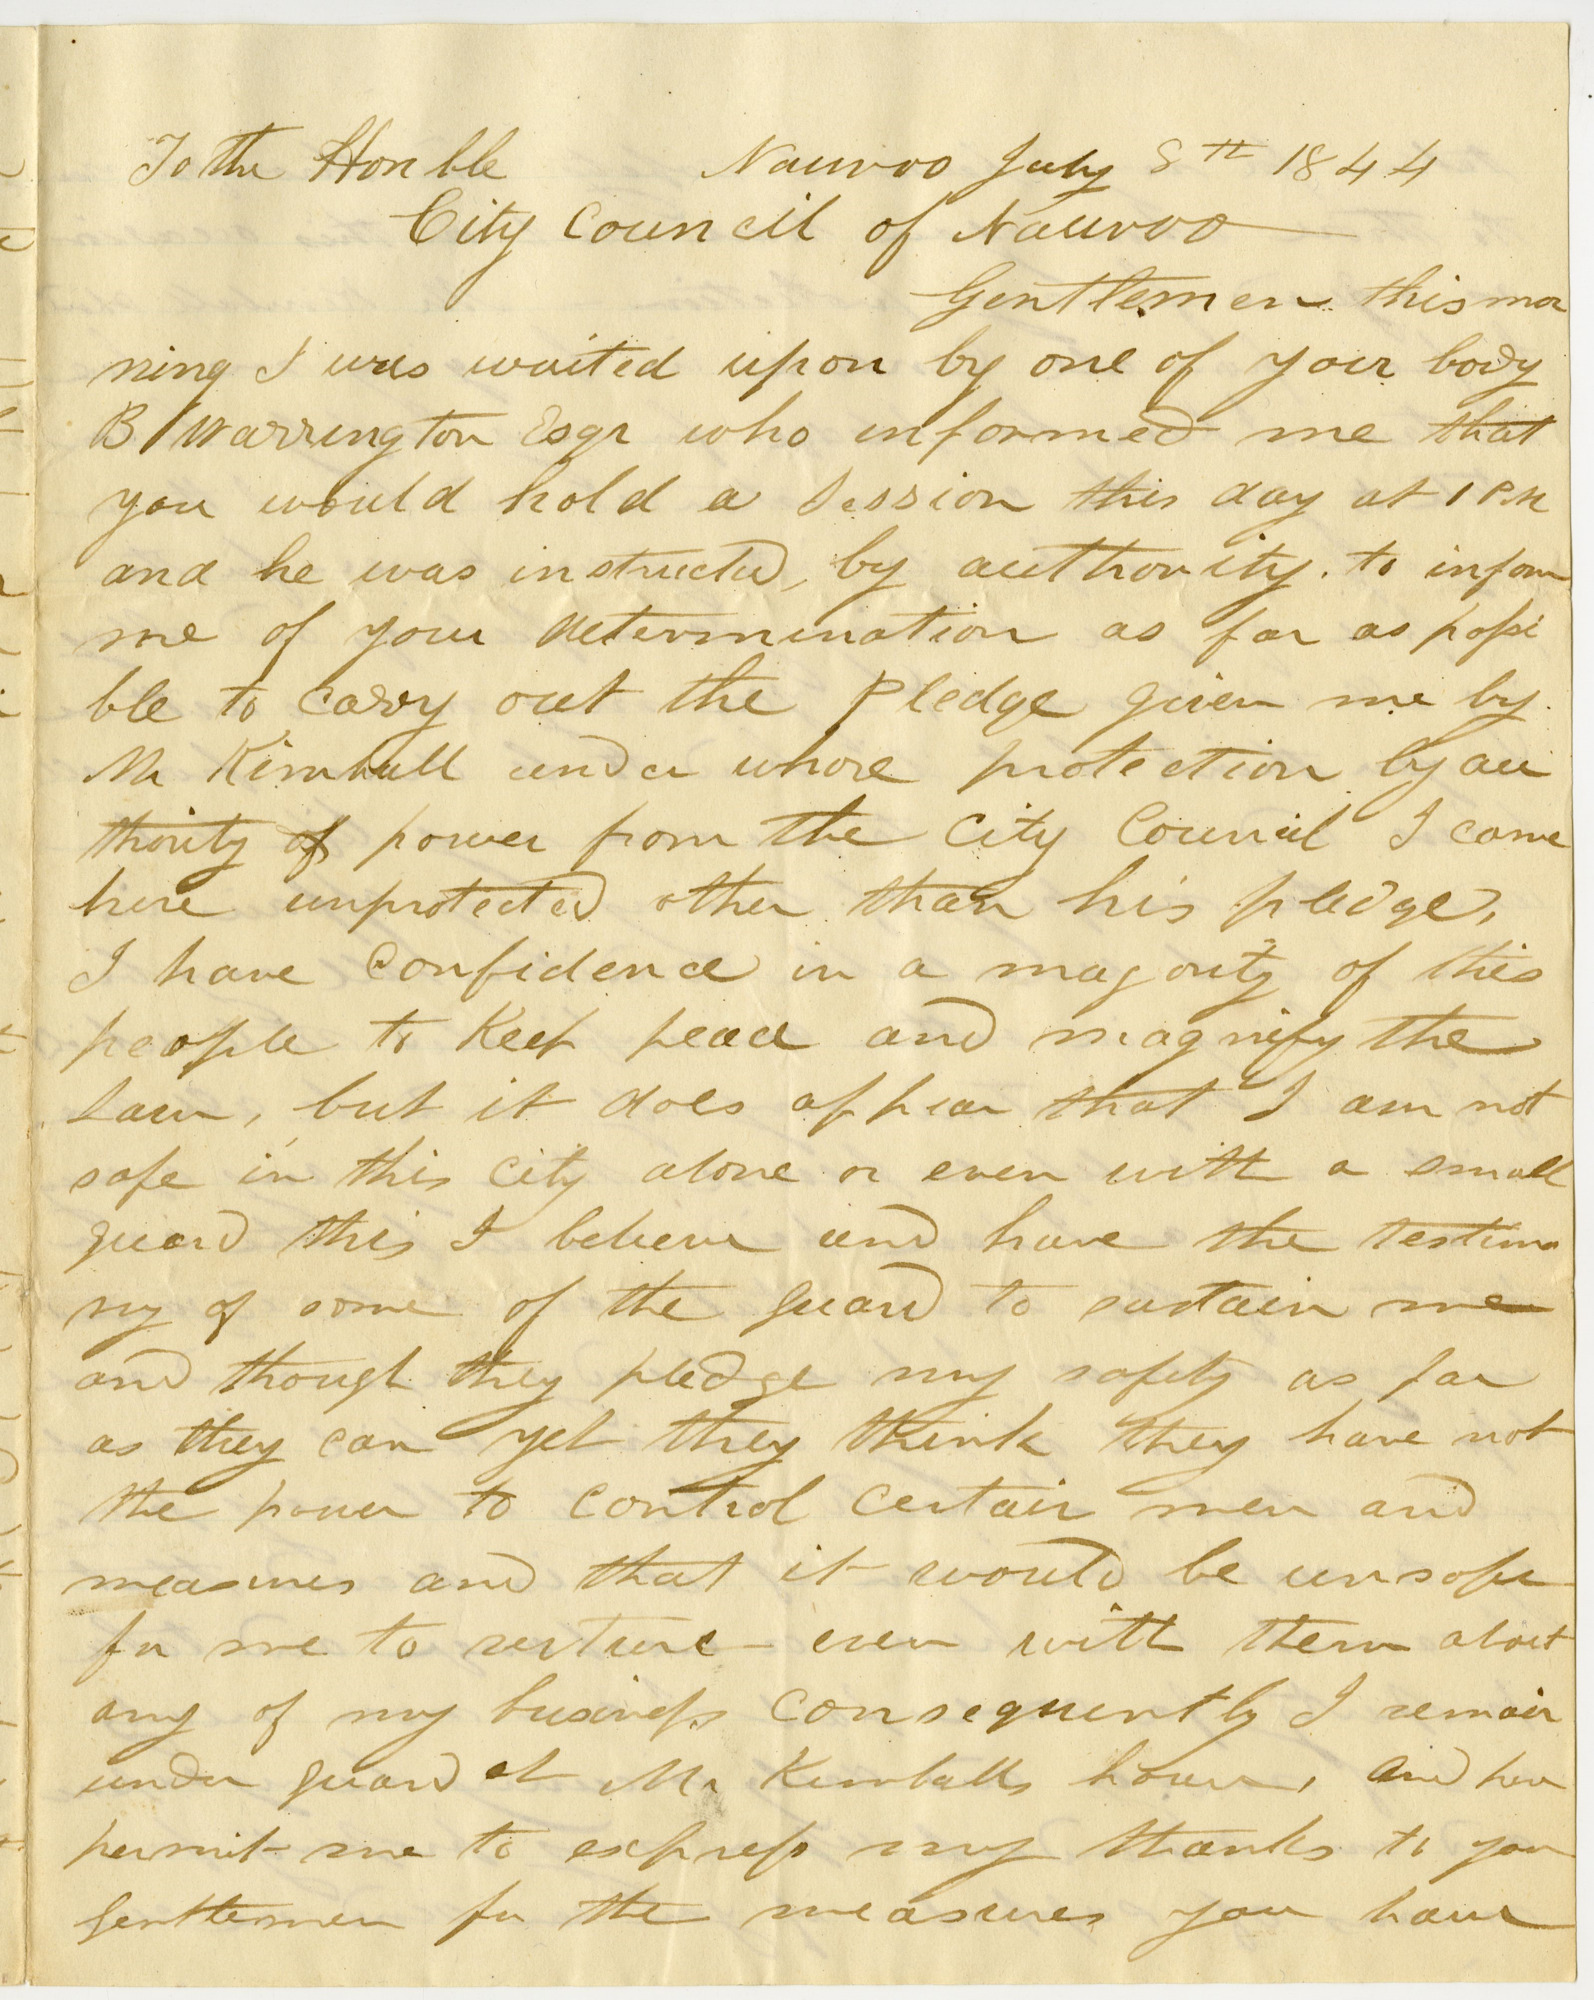 To the Honble Nauvoo July 8th 1844
City Council of Nauvoo
Gentlemen this mor
ning I was waited upon by one of your body
B Warrington Esqr who informed me that
you would hold a Session this day at 1 P.M
and he was instructed, by authority. to inform
me of your determination as far as possi
ble to carry out the Pledge given me by
Mr Kimball under whose protection by au
thority of power from the City Council I came
here unprotected other than his pledge,
I have Confidence in a magority of this
people to Keep peace and magnify the
Law, but it does appear that I am not
safe in this City alone or even with a small
guard this I believe and have the testimo
ny of some of the guard to sustain me
and though they pledge my safety as far
as they can yet they think they have not
the power to Control Certain men and
measures and that it would be unsafe
for me to venture even with them about
any of my business Consequently I remain
under guard at Mr Kimballs house, and here
permit me to express my thanks to you
gentlemen for the measures you have